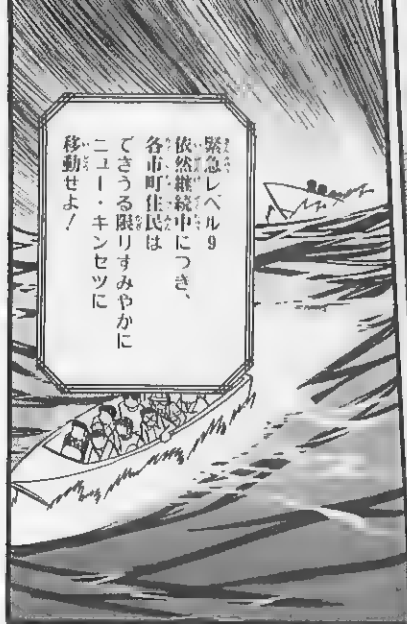 緊急レベル9
依然継続中につき、
各市町住民は
できうる限りすみやかに
ニュー・キンセツに
移動せよ!